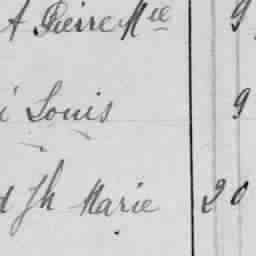 t Pierre Mie 9
i Louis 9
d Jh Marie 20